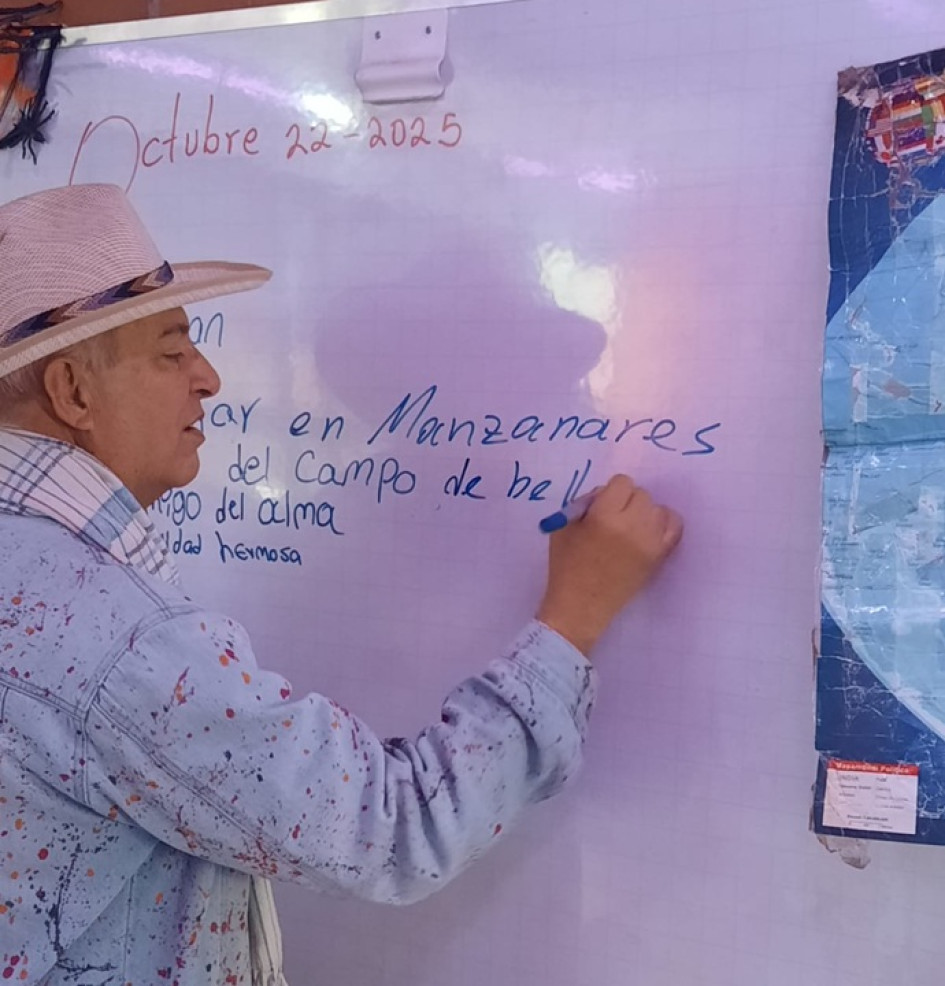 Octubre 22-2025
an
ar en Manzanares
del Campo de bell
igo del alma
dad hermosa